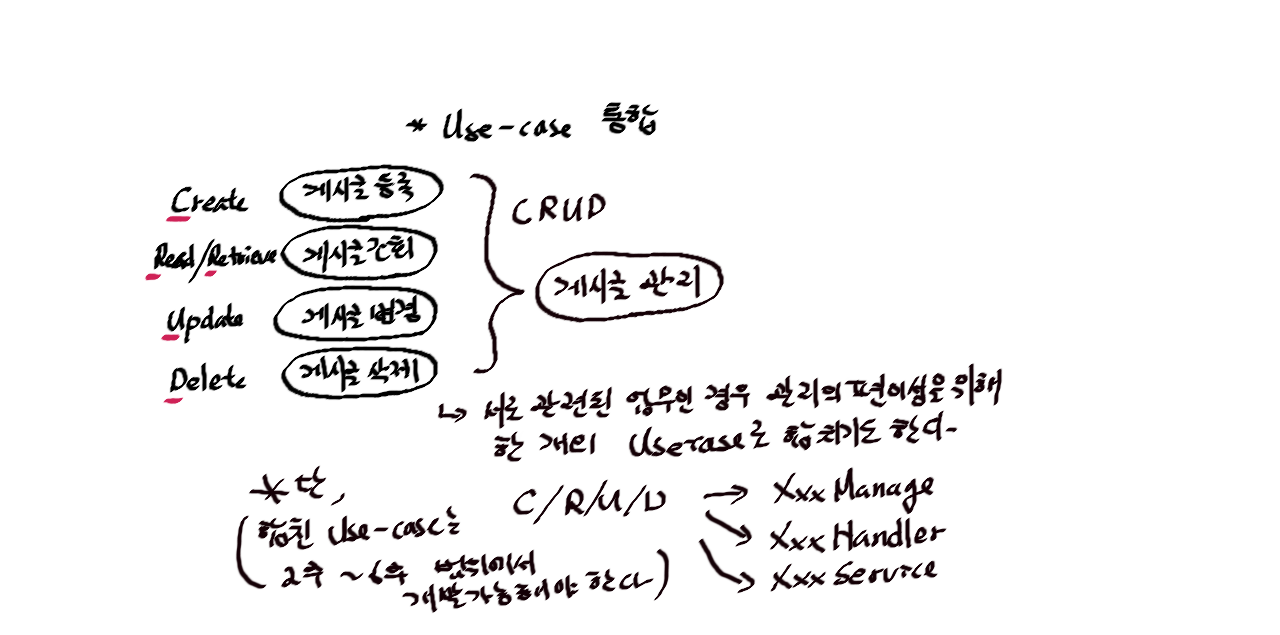 * Use-case 통합
Create 게시글 등록
CRUD
Read/Retrieve 게시글 조회
게시글 관리
Update 게시글 변경
Delete 게시글 삭제
↳ 서로 관련된 업무인 경우 관리의 편이성을 위해
한 개의 Usecase로 합치기도 한다-
* 단,
(합친 Use-case는
2주 ~ 6주 범위에서
개발가능해야 한다)
C/R/U/D → Xxx Manage
↘ Xxx Handler
↘ Xxx Service